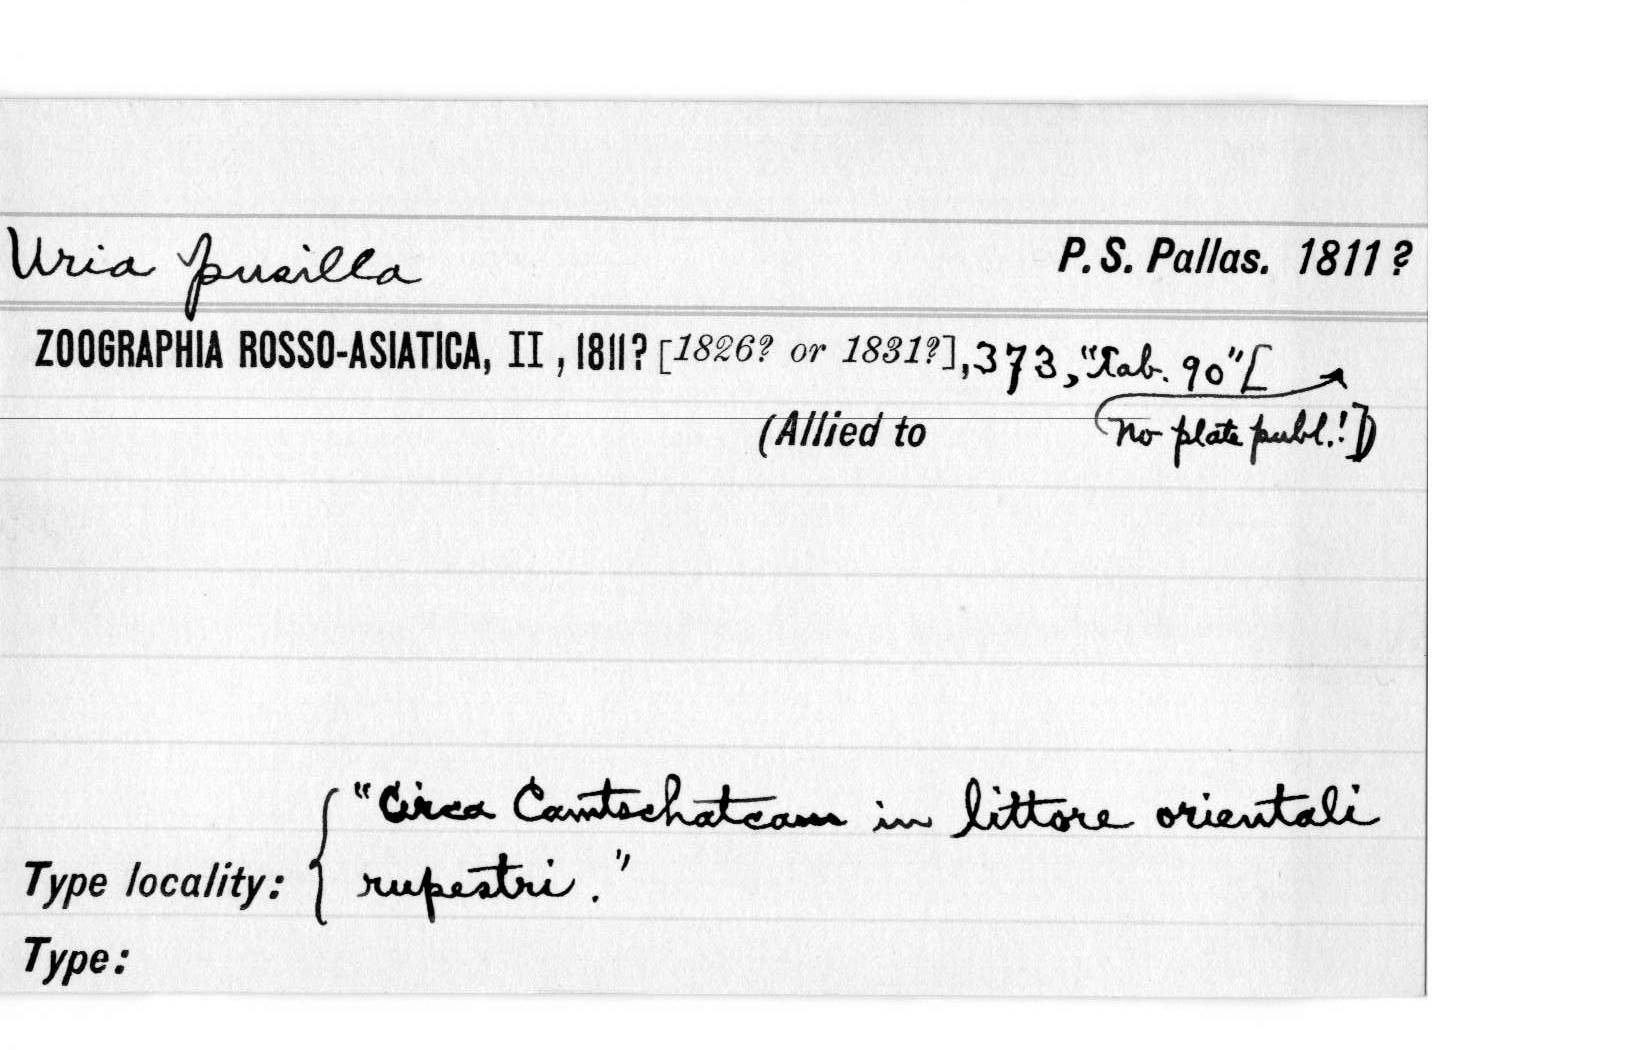 Uria pusilla P. S. Pallas. 1811?
ZOOGRAPHIA ROSSO-ASIATICA, II, 1811? [1826? or 1831?], 373, "Tab. 90" [
(Allied to no plate publ.!])
"Circa Camtschatcam in littore orientali
Type locality: rupestri."
Type: